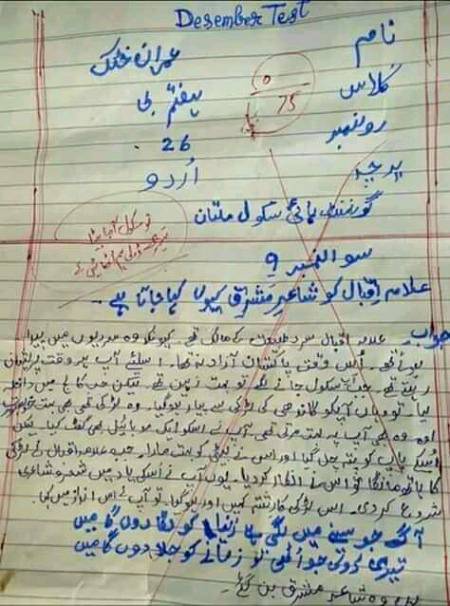 Desember Test
نام عمران خٹک
کلاس ہفتم بی
0
75
رولنمبر 26
پرچہ اُردو
گورنمنٹ ہائی سکول ملتان
تو سکول آجا بیٹا
سوالنمبر 9
علامہ اقبال کو شاعرِ مَشرق کیوں کہا جاتا ہے۔
جواب۔ علامہ اقبال سرد طبیعت کے مالک تھے۔ کیونکہ وہ سردیوں میں پیدا
ہوئے تھے۔ اُس وقت پاکستان آزاد نہ تھا۔ اسلئے آپ ہر وقت پریشان
رہتے تھے۔ جب آپ سکول جانے لگے تو بہت ذہین تھے۔ لیکن جب کالج میں داخلہ
لیا۔ تو وہاں آپکو گاندھی کی لڑکی سے پیار ہوگیا۔ وہ لڑکی بھی بہت خوبصورت
وہ بھی آپ پہ بہت مرتی تھی۔ آپ نے اسکو ایک موبائیل بھی گفٹ کیا۔ لیکن
اُسکے باپ کو پتہ چل گیا اور اس نے لڑکی کو بہت مارا۔ جب علامہ اقبال نے لڑکی
کا ہاتھ مانگا تو اس نے انکار کردیا۔ یوں آپ نے اُسکی یاد میں شعروشاعری
شروع کردی۔ اس لڑکی کا رشتہ کہیں اور ہوگیا۔ تو آپ نے اس انداز میں کہا۔
آگ جو سینے میں لگی ہے دُنیا کو دکھا دوں گا میں
تیری ڈولی جو اُٹھی تو زمانے کو جلا دوں گا میں
وہ شاعر مشرق بن گئے۔